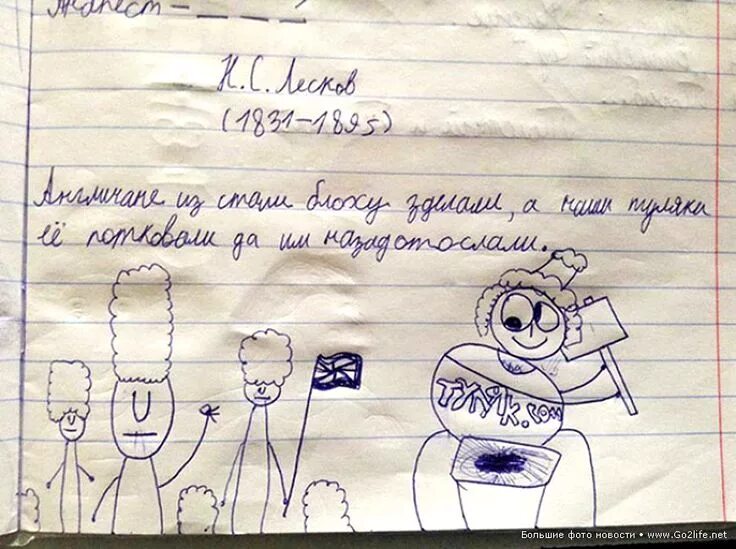 Анапест – _ _ _ /
Н. С. Лесков
(1831–1895)
Англичане из стали блоху зделали, а наши туляки
её потковали да им назадотослали.
ТУЛЯК.COM
Большие фото новости • www.Go2life.net